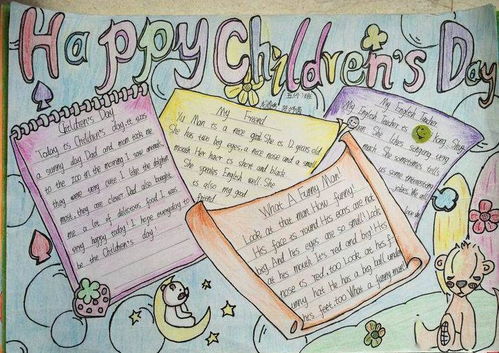 Happy Children's Day
Children's Day
Today is Children's day. It was
a sunny day. Dad and mom took me
to the zoo in the morning. I saw animals
they were very cute. I like the dolphin
most. they are clever. Dad also bought
me a lot of delicious food. I was
very happy today! I hope everyday to
be the Children's day!
My Friend
Yu Man is a nice girl. She is 11 years old
She has two big eyes, a nice nose and a small
mouth. Her hair is short and black
She speaks English well. She
is also my good
friend
My English Teacher
My English Teacher is
She likes
She sometimes tells
us some
What A Funny Man!
Look at that man. How funny!
His face is round. His ears are not
big. And his eyes are so small. Look
at his mouth. It's red and big. His
nose is red, too. Look at his f
unny hat. He has a big ball under
his feet, too. What a funny man!